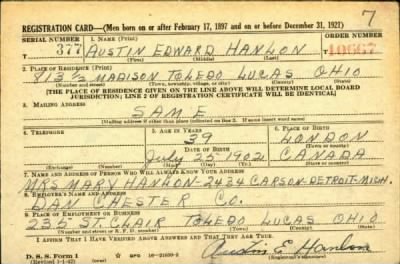 7
REGISTRATION CARD—(Men born on or after February 17, 1897 and on or before December 31, 1921)
SERIAL NUMBER 1. NAME (Print) ORDER NUMBER
377 AUSTIN EDWARD HANLON 10667
(First) (Middle) (Last)
2. PLACE OF RESIDENCE (Print)
813 1/2 MADISON TOLEDO LUCAS OHIO
(Number and street) (Town, township, village, or city) (County) (State)
[THE PLACE OF RESIDENCE GIVEN ON THE LINE ABOVE WILL DETERMINE LOCAL BOARD
JURISDICTION; LINE 2 OF REGISTRATION CERTIFICATE WILL BE IDENTICAL]
3. MAILING ADDRESS
SAME
[Mailing address if other than place indicated on line 2. If same insert word same]
4. TELEPHONE 5. AGE IN YEARS 6. PLACE OF BIRTH
39 LONDON
DATE OF BIRTH (Town or county)
July 25 1902 CANADA
(Exchange) (Number) (Mo.) (Day) (Yr.) (State or country)
7. NAME AND ADDRESS OF PERSON WHO WILL ALWAYS KNOW YOUR ADDRESS
MRS MARY HANLON-2434 CARSON-DETROIT-MICH.
8. EMPLOYER'S NAME AND ADDRESS
DAN CHESTER CO.
9. PLACE OF EMPLOYMENT OR BUSINESS
235 ST. CLAIR TOLEDO LUCAS OHIO
(Number and street or R. F. D. number) (Town) (County) (State)
I AFFIRM THAT I HAVE VERIFIED ABOVE ANSWERS AND THAT THEY ARE TRUE.
D. S. S. Form 1 GPO 16—21630-2 Austin E. Hanlon
(Revised 1-1-42) (over) (Registrant's signature)